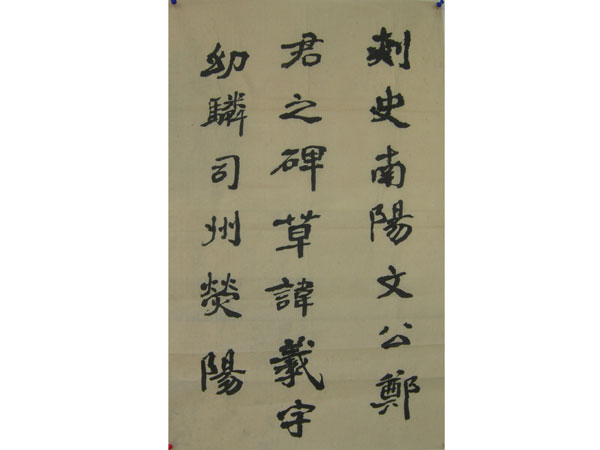 刺史南陽文公鄭
君之碑草諱羲字
幼驎司州熒陽